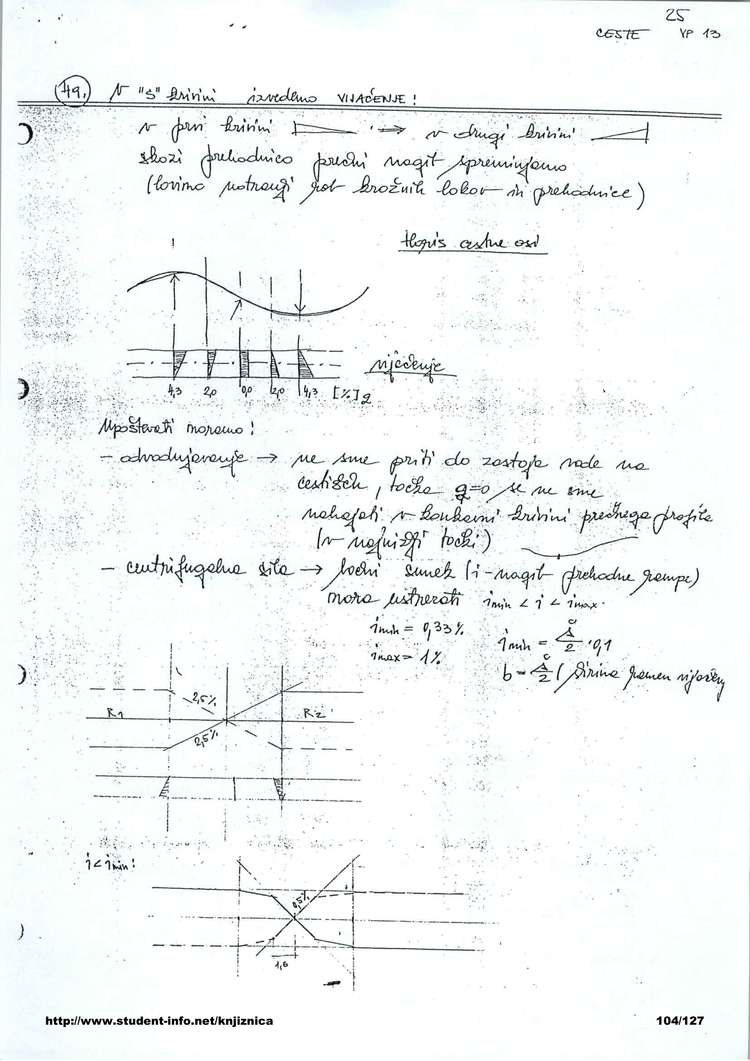 25
CESTE VP 13
49. V "S" krivini izvedemo VIJAČENJE!
v prvi krivini → v drugi krivini
skozi prehodnico prečni nagib spreminjamo
(lovimo notranji rob krožnih lokov in prehodnice)
tloris cestne osi
vijačenje
4,3 2,0 0,0 2,0 4,3 [%] q
Upoštevati moramo!
- odvodnjavanje → ne sme priti do zastoja vode na
cestišču, točka q=0 se ne sme
nahajati v konkavni krivini prečnega profila
(v najnižji točki)
- centrifugalna sila → bočni sunek (i-nagib prehodne rampe)
mora ustrezati imin < i < imax.
imin = 0,33%
imax = 1%
imin = š/2 · 0,1
b = š/2 (širina vijačenj
2,5%
R1 R2
2,5%
i < imin!
0,5%
1,6
http://www.student-info.net/knjiznica
104/127